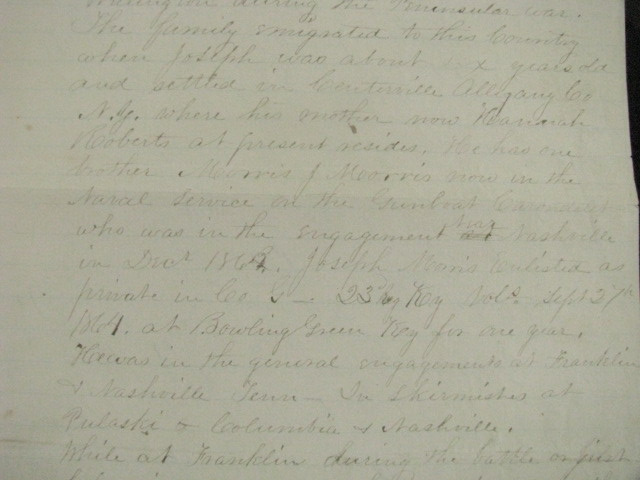 Wellington during the Peninsular war.
The family emigrated to this Country
when Joseph was about six years old
and settled in Centerville Allegany Co
N.Y. where his mother now Hannah
Roberts at present resides. He has one
brother Morris J Morris now in the
Naval Service on the Gunboat Carondelet
who was in the engagement near Nashville
in Dect 1864. Joseph Morris Enlisted as
private in Co G - 23rd Ky Vols. Sept 27th
1864. at Bowling Green Ky for one year.
He was in the general engagements at Franklin
& Nashville Tenn - In skirmishes at
Pulaski & Columbia & Nashville.
While at Franklin during the battle